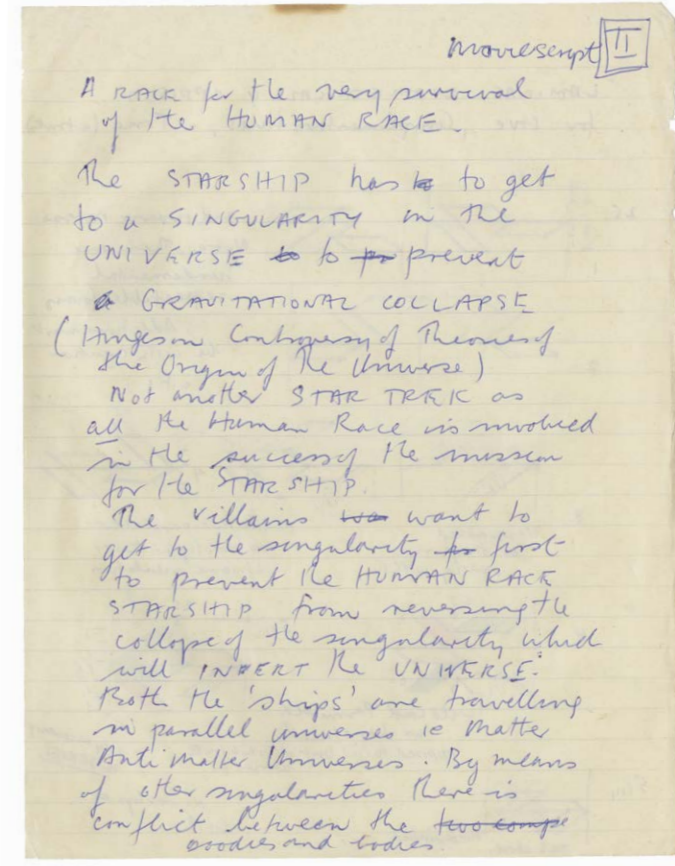 Moviescript II
A RACE for the very survival
of the HUMAN RACE.
The STARSHIP has to get
to a SINGULARITY in the
UNIVERSE to prevent
a GRAVITATIONAL COLLAPSE
(Hinges on Controversy of Theories of
the Origin of the Universe)
Not another STAR TREK as
all the Human Race is involved
in the success of the mission
for the STARSHIP.
The villains want to
get to the singularity first
to prevent the HUMAN RACE
STARSHIP from reversing the
collapse of the singularity which
will INVERT the UNIVERSE.
Both the 'ships' are travelling
in parallel universes ie Matter
Anti matter Universes. By means
of other singularities there is
conflict between the two compe
goodies and bodies